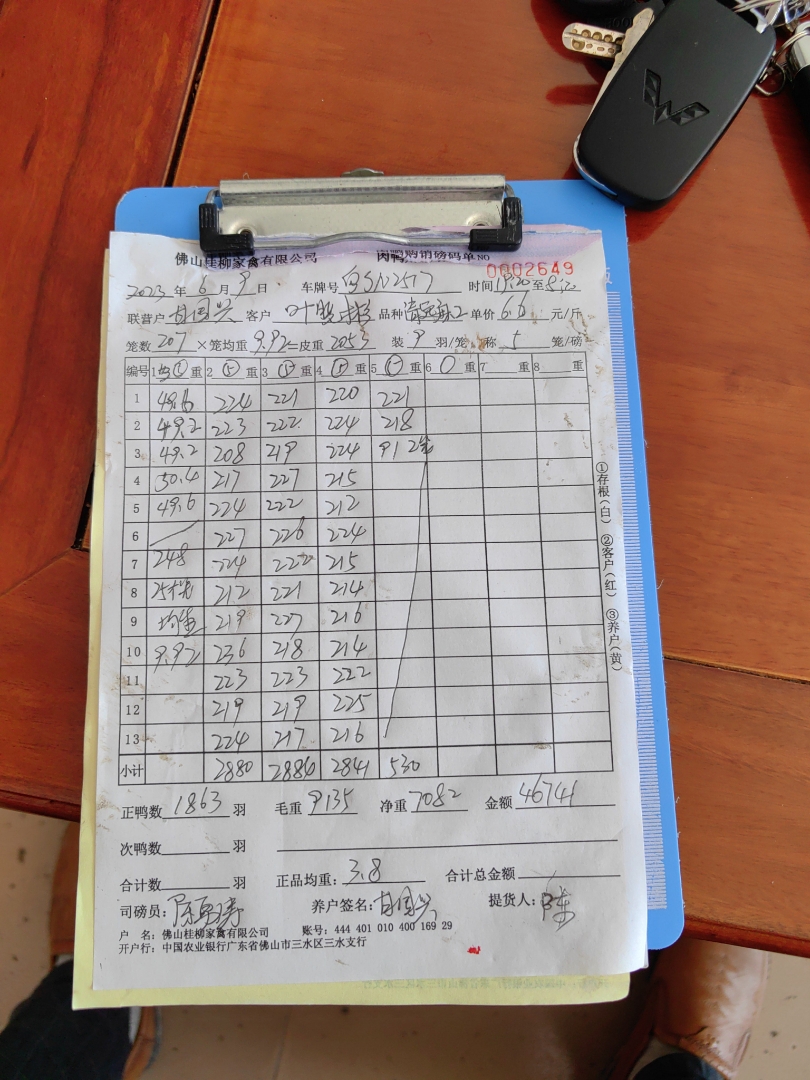 佛山桂柳家禽有限公司 肉鸭购销磅码单NO 0002649
2023 年 6 月 9 日 车牌号 时间 至
联营户 甘国兴 客户 品种 单价 6.6 元/斤
笼数 207 ×笼均重 9.92 =皮重 2053 装 9 羽/笼, 称 5 笼/磅
编号 1 均① 重 2 ⑤ 重 3 ⑤ 重 4 ⑤ 重 5 重 6 重 7 重 8 重
1 49.6 224 221 220 221
2 49.2 223 222 224 218
3 49.2 208 219 224 91 2笼
4 50.4 217 227 215
5 49.6 224 222 212
6 227 226 224
7 248 224 222 215
8 212 221 214
9 219 227 216
10 9.92 236 218 214
11 223 223 222
12 219 219 225
13 224 217 216
小计 2880 2884 2841 530
正鸭数 1863 羽 毛重 9135 净重 7082 金额 46741
次鸭数 羽
合计数 羽 正品均重: 3.8 合计总金额
司磅员: 养户签名: 甘国兴 提货人: 陈
户 名: 佛山桂柳家禽有限公司 账号: 444 401 010 400 169 29
开户行: 中国农业银行广东省佛山市三水区三水支行
①存根(白) ②客户(红) ③养户(黄)